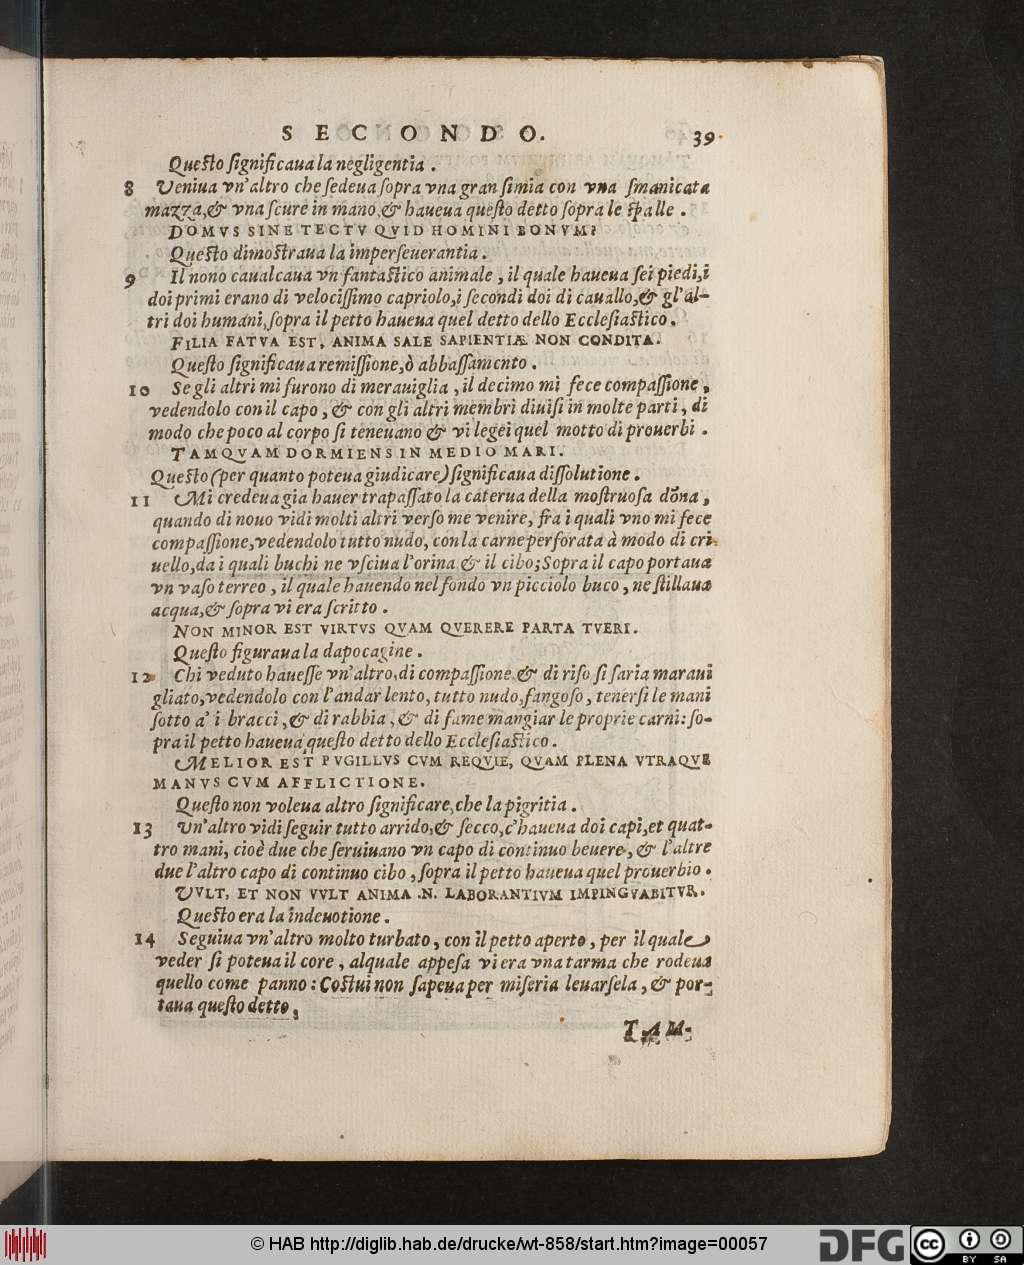 SECONDO. 39
Queſto ſignificaua la negligentia.
8 Veniua vn'altro che ſedeua ſopra vna gran ſimia con vna ſmanicata
mazza,& vna ſcure in mano,& haueua queſto detto ſopra le ſpalle.
DOMVS SINE TECTV QVID HOMINI BONVM?
Queſto dimoſtraua la imperſeuerantia.
9 Il nono caualcaua vn fantaſtico animale, il quale haueua ſei piedi,i
doi primi erano di velociſſimo capriolo,i ſecondi doi di cauallo,& gl'al-
tri doi humani,ſopra il petto haueua quel detto dello Eccleſiaſtico.
FILIA FATVA EST, ANIMA SALE SAPIENTIÆ NON CONDITA.
Queſto ſignificaua remiſſione,ò abbaſſamento.
10 Se gli altri mi furono di merauiglia, il decimo mi fece compaſſione,
vedendolo con il capo, & con gli altri membri diuiſi in molte parti, di
modo che poco al corpo ſi teneuano & vi legei quel motto di prouerbi.
TAMQVAM DORMIENS IN MEDIO MARI.
Queſto (per quanto poteua giudicare) ſignificaua diſſolutione.
11 Mi credeua gia hauer trapaſſato la caterua della moſtruoſa dõna,
quando di nouo vidi molti altri verſo me venire, fra i quali vno mi fece
compaſſione,vedendolo tutto nudo, con la carne perforata à modo di cri-
uello,da i quali buchi ne vſciua l'orina & il cibo; Sopra il capo portaua
vn vaſo terreo, il quale hauendo nel fondo vn picciolo buco, ne ſtillaua
acqua,& ſopra vi era ſcritto.
NON MINOR EST VIRTVS QVAM QVERERE PARTA TVERI.
Queſto figuraua la dapocagine.
12 Chi veduto haueſſe vn'altro,di compaſſione,& di riſo ſi ſaria maraui
gliato,vedendolo con l'andar lento, tutto nudo,fangoſo, tenerſi le mani
ſotto a' i bracci,& di rabbia, & di fame mangiar le proprie carni: ſo-
pra il petto haueua queſto detto dello Eccleſiaſtico.
MELIOR EST PVGILLVS CVM REQVIE, QVAM PLENA VTRAQVE
MANVS CVM AFFLICTIONE.
Queſto non voleua altro ſignificare,che la pigritia.
13 Vn'altro vidi ſeguir tutto arrido,& ſecco,c'haueua doi capi,et quat-
tro mani, cioè due che ſeruiuano vn capo di continuo beuere, & l'altre
due l'altro capo di continuo cibo, ſopra il petto haueua quel prouerbio.
VVLT, ET NON VVLT ANIMA .N. LABORANTIVM IMPINGVABITVR.
Queſto era la indeuotione.
14 Seguiua vn'altro molto turbato, con il petto aperto, per il quale
veder ſi poteua il core, alquale appeſa vi era vna tarma che rodeua
quello come panno: Coſtui non ſapeua per miſeria leuarſela, & por-
taua queſto detto,
TAM-
© HAB http://diglib.hab.de/drucke/wt-858/start.htm?image=00057
DFG
cc BY SA